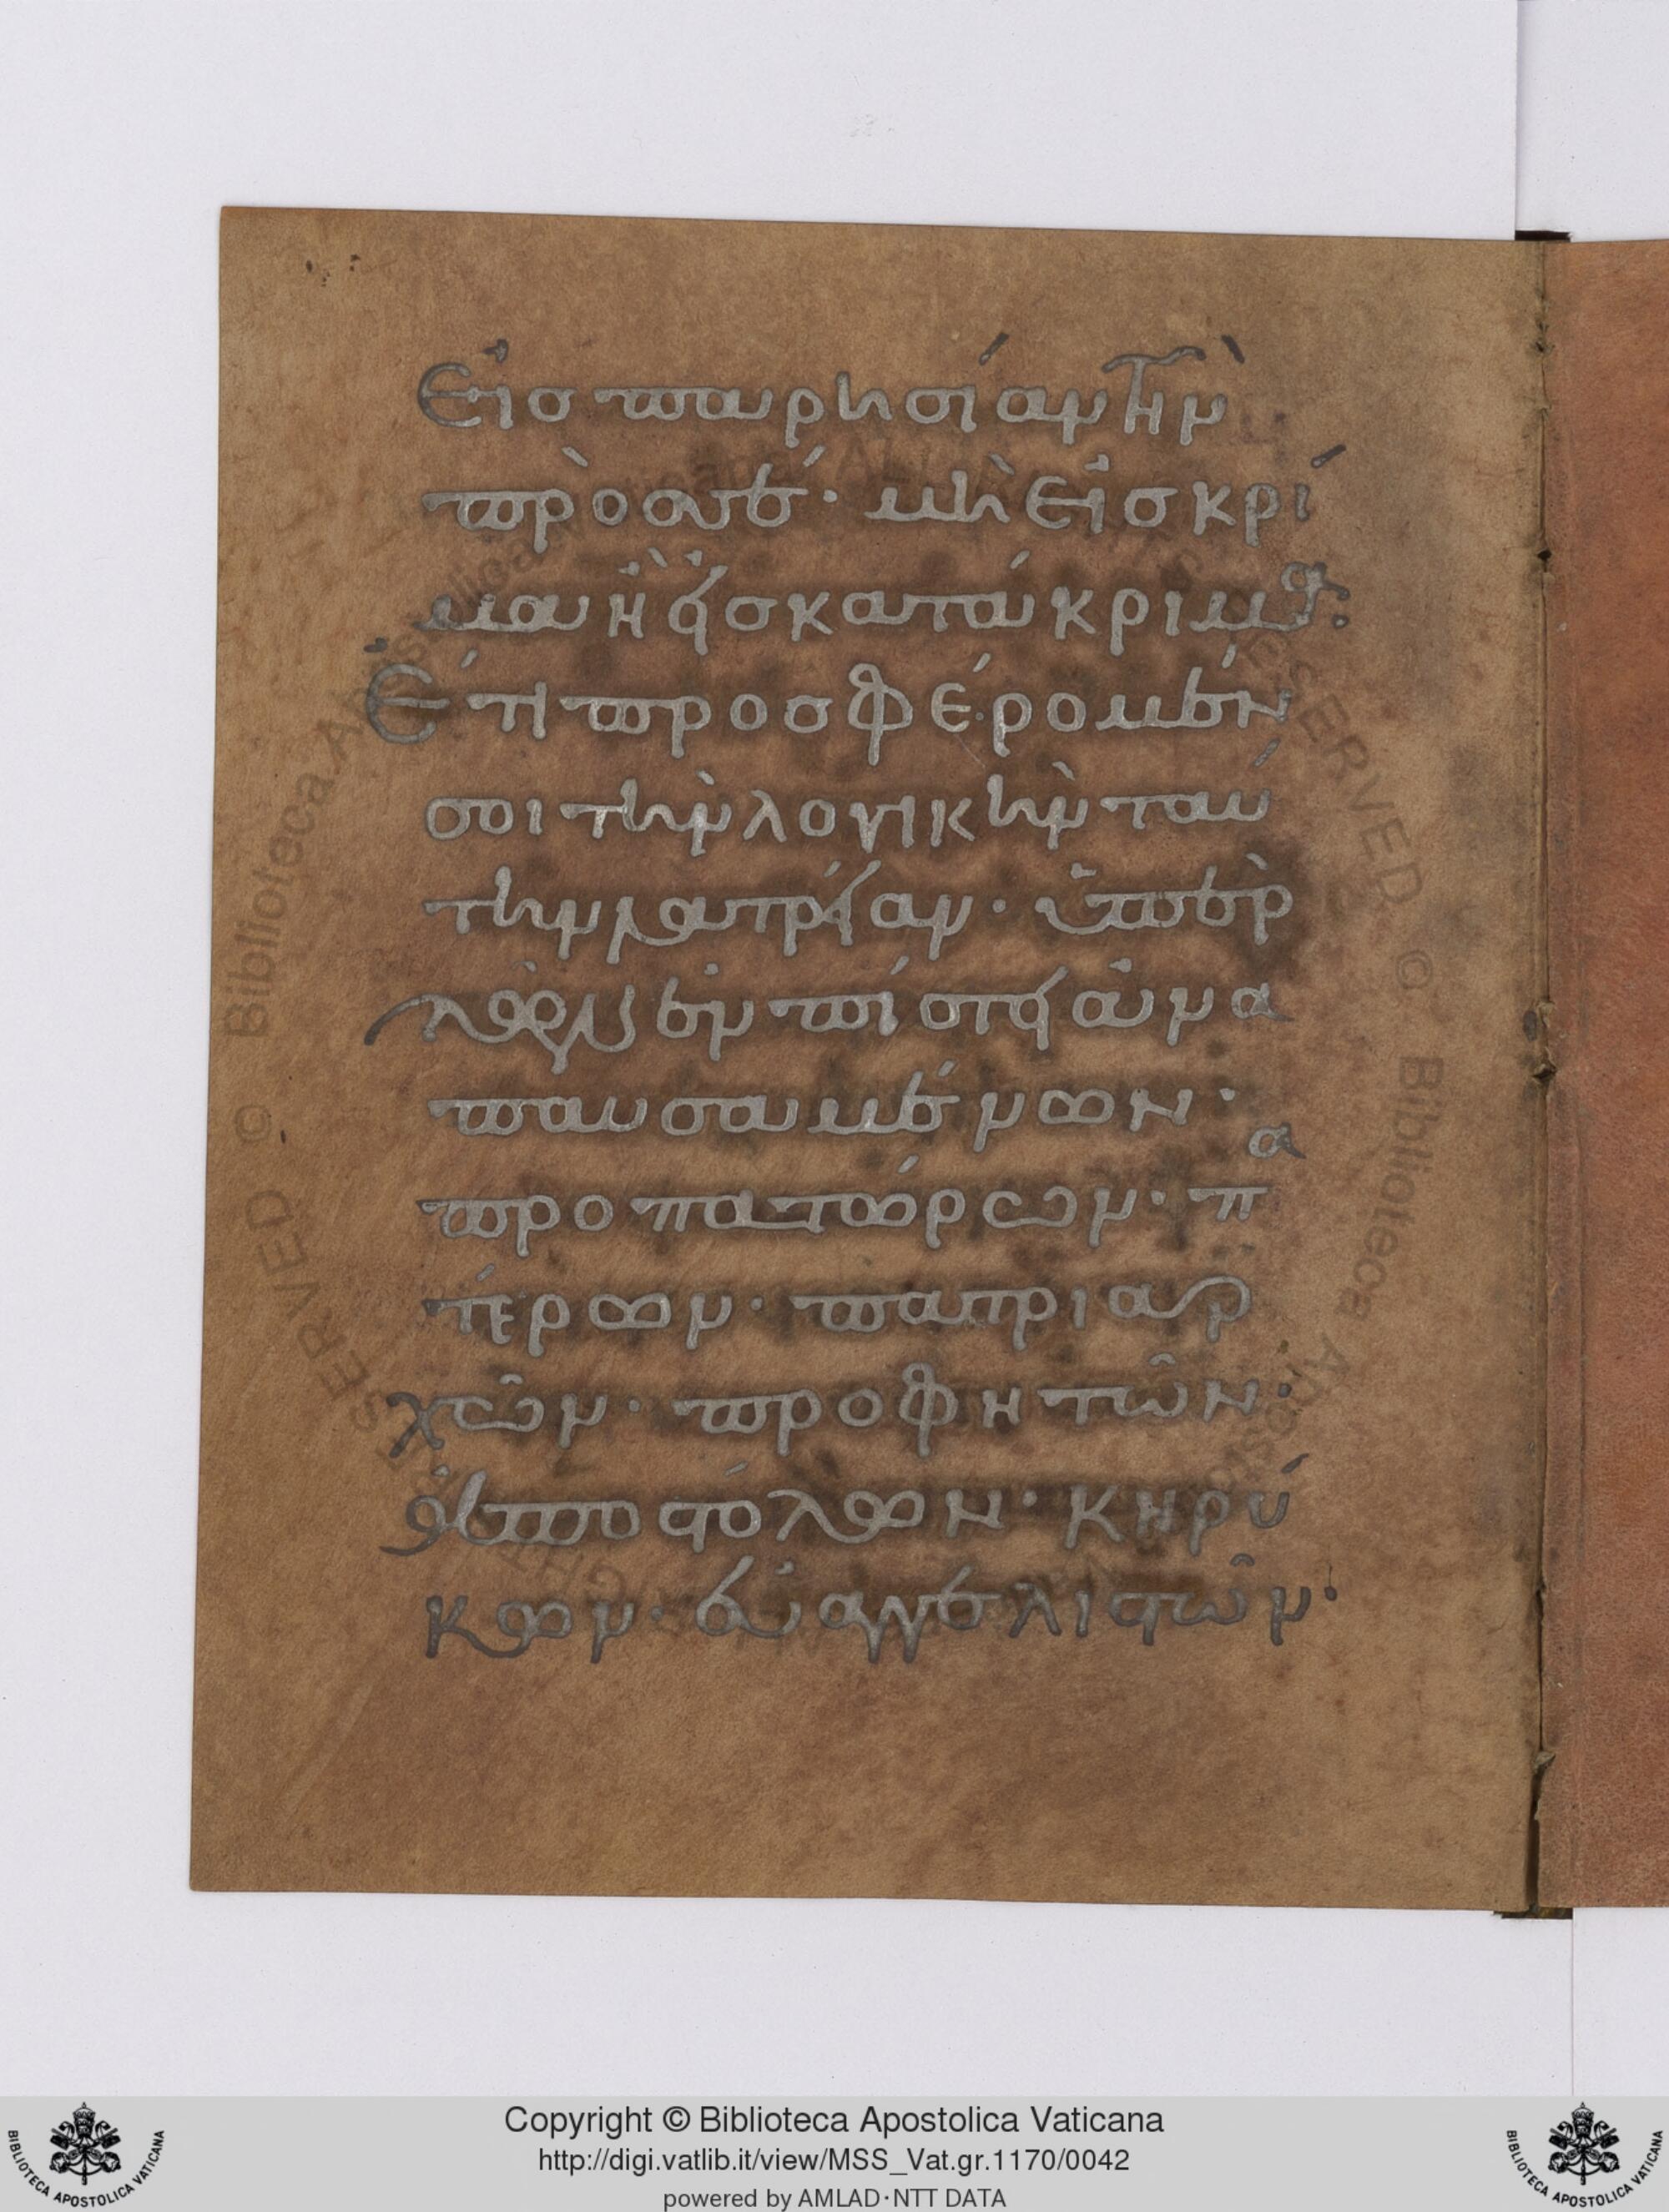 Εἰσ παρησίαν τὴν
πρὸσ σέ· μὴ εἰσ κρί
μα ἢ εἰσ κατάκριμα:
Ἔτι προσφέρομέν
σοι τὴν λογικὴν ταύ
την λατρείαν· ὑπὲρ
τῶν ἐν πίστει ἀνα
παυσαμένων·
προπατόρων· πα
τέρων· πατριαρ
χῶν· προφητῶν·
ἀποστόλων· κηρύ
κων· εὐαγγελιστῶν·
Copyright © Biblioteca Apostolica Vaticana
http://digi.vatlib.it/view/MSS_Vat.gr.1170/0042
powered by AMLAD·NTT DATA
BIBLIOTECA APOSTOLICA VATICANA
BIBLIOTECA APOSTOLICA VATICANA